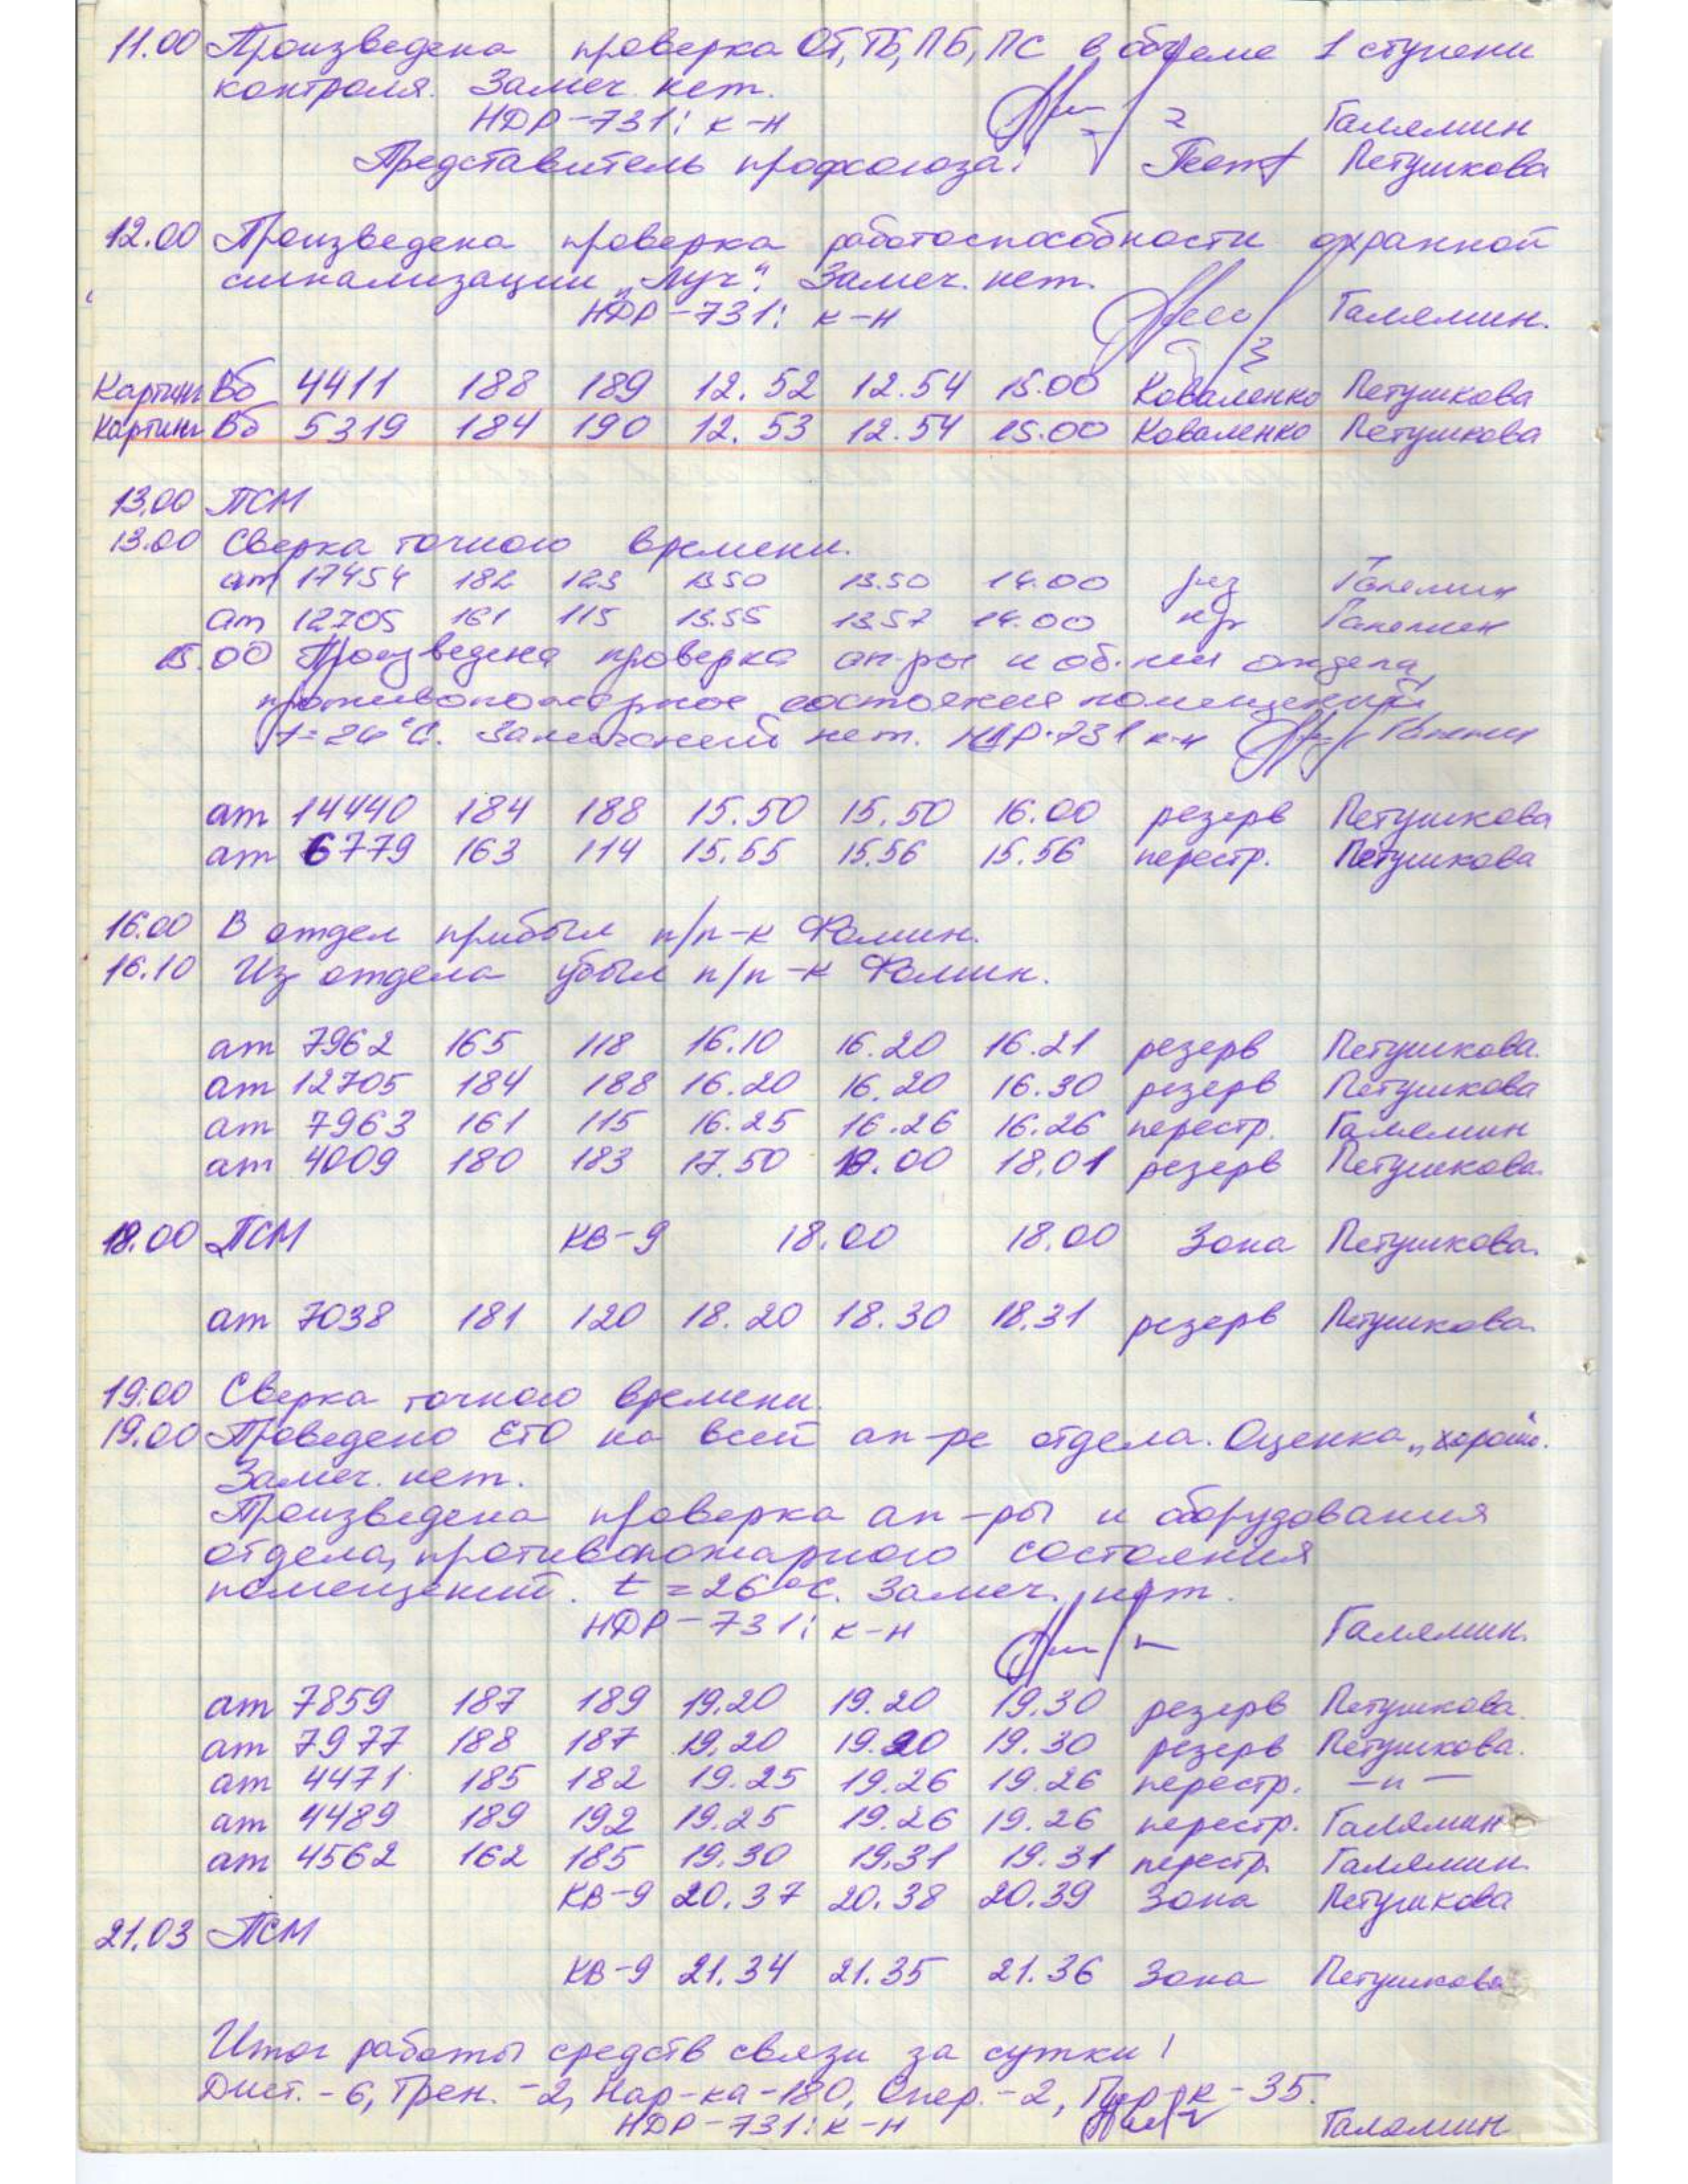 11.00 Произведена проверка ОТ, ТБ, ПБ, ПС в объеме 1 ступени
контроля. Замеч. нет.
НДР-731: к-н Галямин
Представитель профсоюза: Петушкова
12.00 Произведена проверка работоспособности охранной
сигнализации "Луч". Замеч. нет.
НДР-731: к-н Галямин.
Картинг Вб 4411 188 189 12.52 12.54 15.00 Коваленко Петушкова
Картинг Вб 5319 184 190 12.53 12.54 15.00 Коваленко Петушкова
13.00 ПСМ
13.00 Сверка точного времени.
ат 17454 182 123 13.50 13.50 14.00 рез Галямин
ат 12705 161 115 13.55 13.57 14.00 Галямин
15.00 Произведена проверка ап-ры и об-ния отдела,
противопожарное состояния помещений
t=26°C. Замечаний нет. НДР-731 к-н Галямин
ат 14440 184 188 15.50 15.50 16.00 резерв Петушкова
ат 6779 163 114 15.55 15.56 15.56 перестр. Петушкова
16.00 В отдел прибыл п/п-к Фомин.
16.10 Из отдела убыл п/п-к Фомин.
ат 7962 165 118 16.10 16.20 16.21 резерв Петушкова.
ат 12705 184 188 16.20 16.20 16.30 резерв Петушкова
ат 7963 161 115 16.25 16.26 16.26 перестр. Галямин
ат 4009 180 183 17.50 18.00 18.01 резерв Петушкова.
18.00 ПСМ КВ-9 18.00 18.00 Зона Петушкова.
ат 7038 181 120 18.20 18.30 18.31 резерв Петушкова.
19.00 Сверка точного времени.
19.00 Проведено ЕТО на всей ап-ре отдела. Оценка "хорошо".
Замеч. нет.
Произведена проверка ап-ры и оборудования
отдела, противопожарного состояния
помещений. t=26°C. Замеч. нет.
НДР-731: к-н Галямин.
ат 7859 187 189 19.20 19.20 19.30 резерв Петушкова.
ат 7977 188 187 19.20 19.20 19.30 резерв Петушкова.
ат 4471 185 182 19.25 19.26 19.26 перестр. —"—
ат 4489 189 192 19.25 19.26 19.26 перестр. Галямин
ат 4562 162 185 19.30 19.31 19.31 перестр. Галямин.
КВ-9 20.37 20.38 20.39 Зона Петушкова
21.03 ПСМ
КВ-9 21.34 21.35 21.36 Зона Петушкова
Итог работы средств связи за сутки!
Дист. - 6, Трен. - 2, Нар-ка - 180, Опер. - 2, - 35.
НДР-731: к-н Галямин